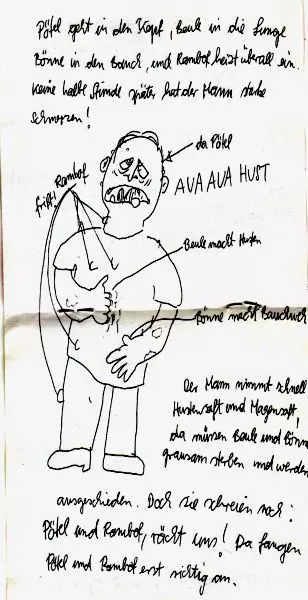 Pötel geht in den Kopf, Beule in die Lunge
Bönne in den Bauch, und Rombof heizt überall ein.
Keine halbe Stunde später hat der Mann starke
Schmerzen!
da Pötel
Rombof
frißt!
AUA AUA HUST
Beule macht Husten
Bönne macht Bauchweh
Der Mann nimmt schnell
Hustensaft und Magensaft,
da müssen Beule und Bönne
grausam sterben und werden
ausgeschieden. Doch sie schreien noch:
Pötel und Rombof, rächt uns! Da fangen
Pötel und Rombof erst richtig an.